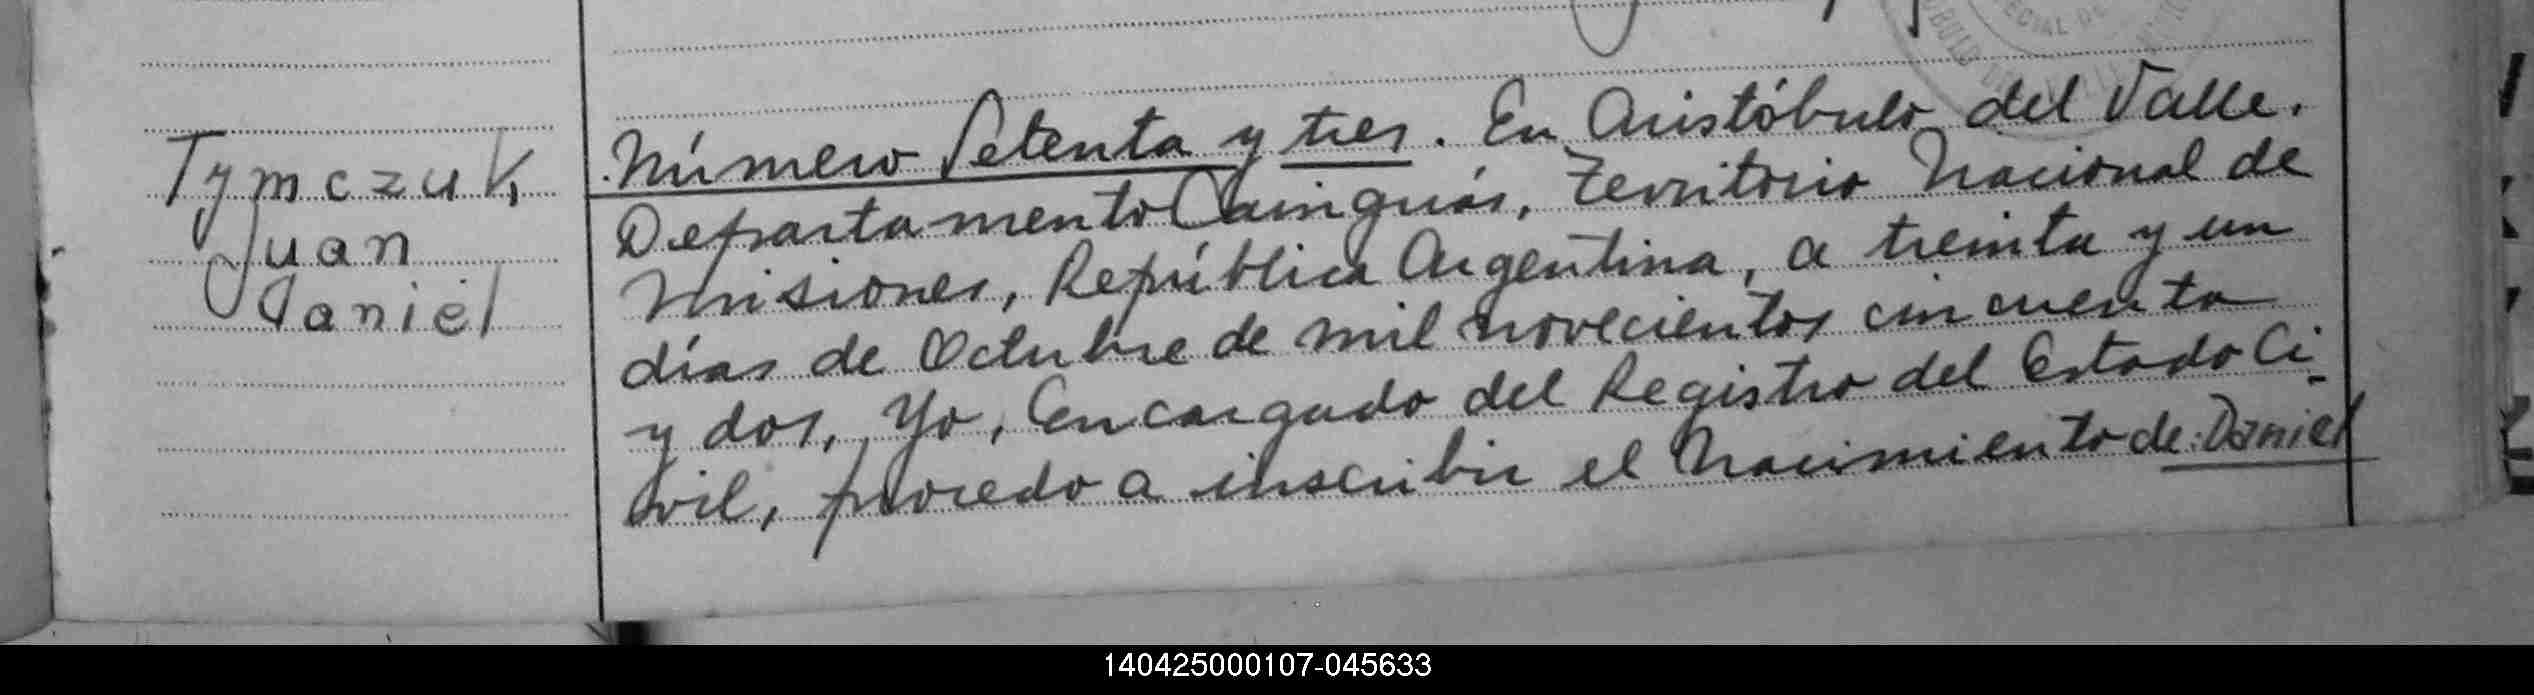 Tymczuk,
Juan
Daniel
Número Setenta y tres. En Aristóbulo del Valle.
Departamento Cainguás, Territorio Nacional de
Misiones, República Argentina, a treinta y un
días de Octubre de mil novecientos cincuenta
y dos, Yo, Encargado del Registro del Estado Ci-
vil, procedo a inscribir el Nacimiento de: Daniel
140425000107-045633